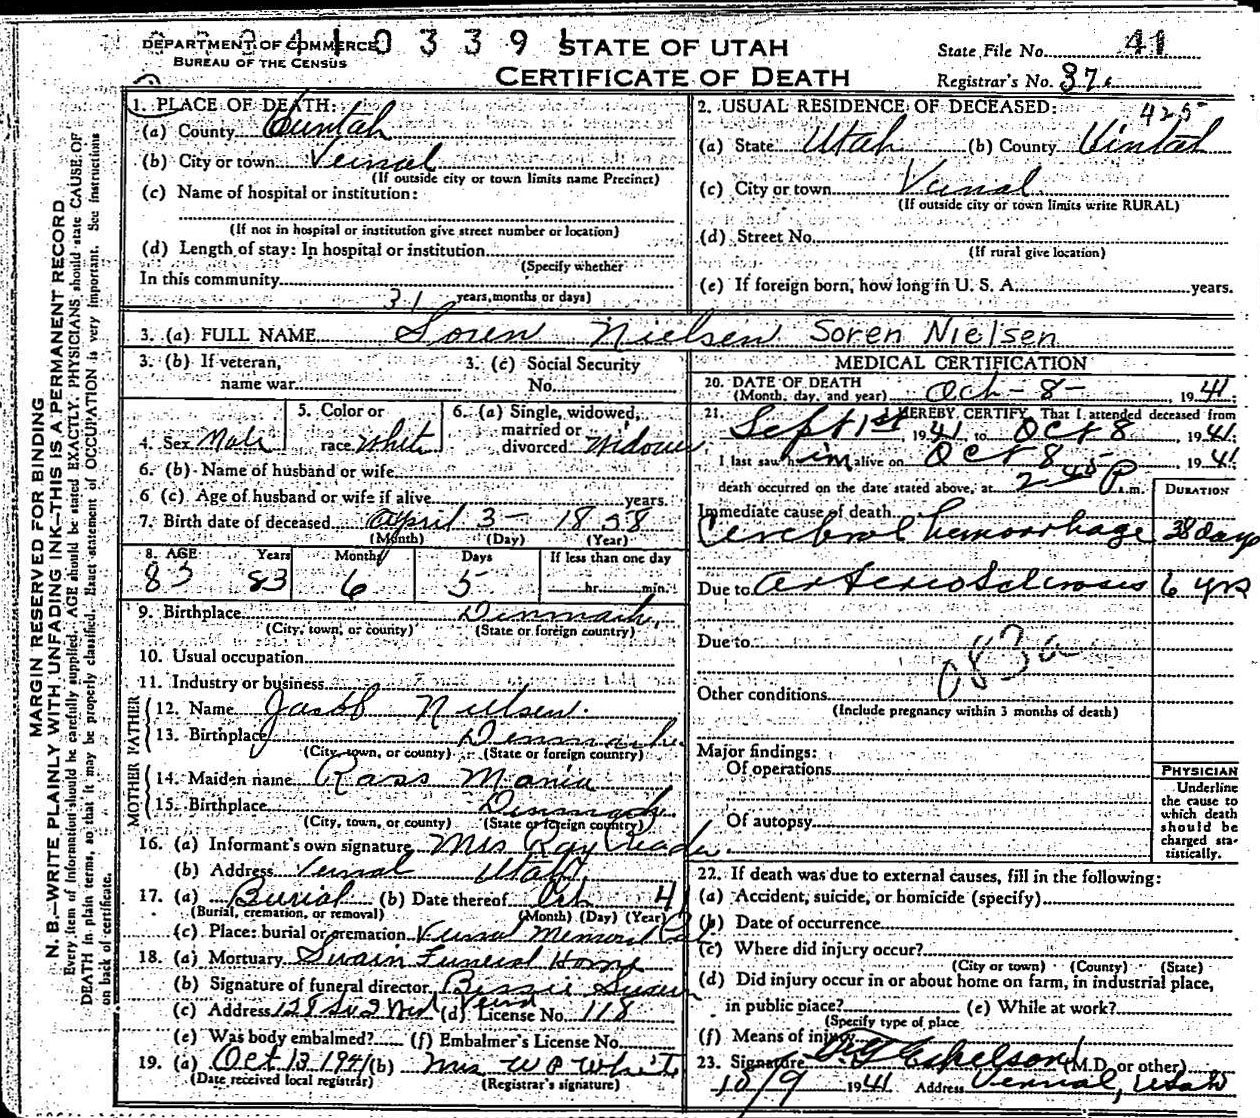 DEPARTMENT OF COMMERCE
BUREAU OF THE CENSUS
0 3 3 9
STATE OF UTAH
CERTIFICATE OF DEATH
State File No. 41
Registrar's No. 37
MARGIN RESERVED FOR BINDING
N. B.—WRITE PLAINLY WITH UNFADING INK—THIS IS A PERMANENT RECORD
Every item of information should be carefully supplied. AGE should be stated EXACTLY. PHYSICIANS should state CAUSE OF
DEATH in plain terms, so that it may be properly classified. Exact statement of OCCUPATION is very important. See instructions
on back of certificate.
1. PLACE OF DEATH:
(a) County Uintah
(b) City or town Vernal
(If outside city or town limits name Precinct)
(c) Name of hospital or institution:
(If not in hospital or institution give street number or location)
(d) Length of stay: In hospital or institution
(Specify whether
In this community 31 years, months or days)
2. USUAL RESIDENCE OF DECEASED: 425
(a) State Utah (b) County Uintah
(c) City or town Vernal
(If outside city or town limits write RURAL)
(d) Street No.
(If rural give location)
(e) If foreign born, how long in U. S. A. years.
3. (a) FULL NAME Soren Nielsen Soren Nielsen
3. (b) If veteran,
name war
3. (c) Social Security
No.
4. Sex Male
5. Color or
race White
6. (a) Single, widowed,
married or
divorced Widower
6. (b) Name of husband or wife
6 (c) Age of husband or wife if alive years.
7. Birth date of deceased April 3 - 1858
(Month) (Day) (Year)
8. AGE Years Months Days If less than one day
83 83 6 5 hr. min.
9. Birthplace Denmark
(City, town, or county) (State or foreign country)
10. Usual occupation
11. Industry or business
FATHER
12. Name Jacob Nielsen
13. Birthplace Denmark
(City, town, or county) (State or foreign country)
MOTHER
14. Maiden name Rass Maria
15. Birthplace Denmark
(City, town, or county) (State or foreign country)
16. (a) Informant's own signature Mrs Ray
(b) Address Vernal Utah
17. (a) Burial (b) Date thereof Oct 41
(Burial, cremation, or removal) (Month) (Day) (Year)
(c) Place: burial or cremation Vernal Memorial
18. (a) Mortuary Swain Funeral Home
(b) Signature of funeral director Bessie Swain
(c) Address (d) License No. 118
(e) Was body embalmed? (f) Embalmer's License No.
19. (a) Oct 13 1941 (b) Mrs W P White
(Date received local registrar) (Registrar's signature)
MEDICAL CERTIFICATION
20. DATE OF DEATH
(Month, day, and year) Oct - 8 - , 19 41.
21. I HEREBY CERTIFY, That I attended deceased from
Sept 1st, 1941 to Oct 8, 1941
I last saw him alive on Oct 8, 1941
death occurred on the date stated above, at 2 45 P.m.
DURATION
Immediate cause of death
Cerebral hemorrhage 38 days
Due to arteriosclerosis 6 yrs
Due to
083a
Other conditions
(Include pregnancy within 3 months of death)
Major findings:
Of operations
Of autopsy
PHYSICIAN
Underline
the cause to
which death
should be
charged sta-
tistically.
22. If death was due to external causes, fill in the following:
(a) Accident, suicide, or homicide (specify)
(b) Date of occurrence
(c) Where did injury occur?
(City or town) (County) (State)
(d) Did injury occur in or about home on farm, in industrial place,
in public place? (e) While at work?
(Specify type of place
(f) Means of injury
23. Signature Eskelson (M.D. or other)
10/9 1941 Address Vernal, Utah